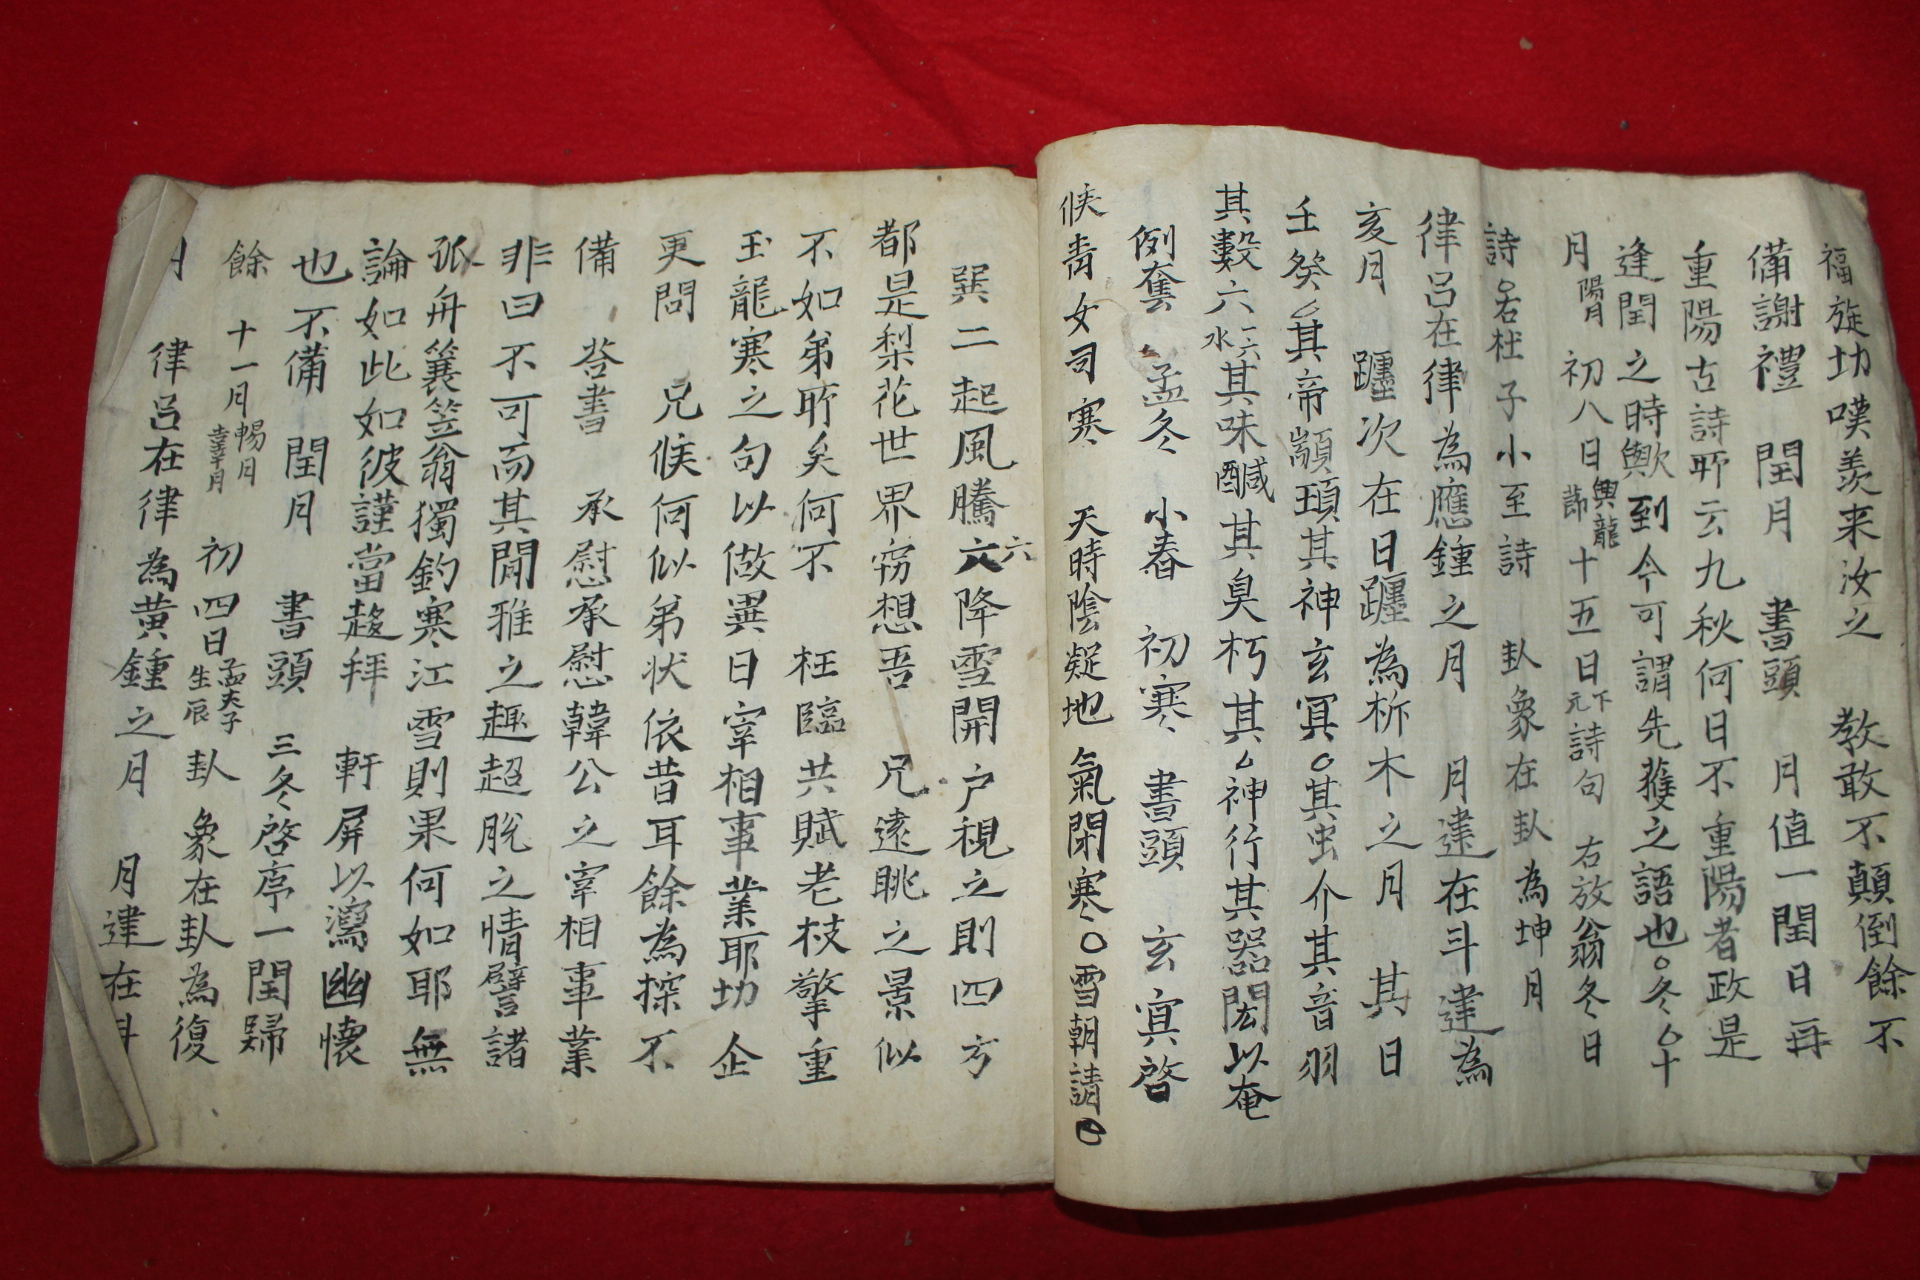 福旋功嘆羨来汝之 教敢不顛倒餘不
備謝禮 閏月 書頭 月值一閏日再
重陽古詩所云九秋何日不重陽者政是
逢閏之時歟到今可謂先獲之語也○冬十
月 陽月 初八日 輿龍節 十五日 下元 詩句 右放翁冬日
詩 右杜子小至詩 卦象在卦為坤月
律呂在律為應鍾之月 月建在斗建為
亥月 躔次在日躔為析木之月 其日
壬癸 其帝顓頊其神玄冥○其虫介其音羽
其數六 一六水 其味醎其臭朽其神行其器閎以奄
例奪 孟冬 小春 初寒 書頭 玄冥啓
候青女司寒 天時陰疑地氣閉寒○雪朝請
巽二起風騰六降雪開户視之則四方
都是梨花世界窃想吾 兄遠眺之景似
不如弟所矣何不 枉臨共賦老枝擎重
玉龍寒之句以做異日宰相事業耶功企
更問 兄候何似弟状依昔耳餘為探不
備 答書 承慰承慰韓公之宰相事業
非曰不可而其閒雅之趣超脫之情譬諸
孤舟簑笠翁獨釣寒江雪則果何如耶無
論如此如彼謹當趍拜 軒屏以瀉幽懐
也不備 閏月 書頭 三冬啓序一閏歸
餘 十一月 暢月 辜月 初四日 孟夫子生辰 卦象在卦為復
月 律呂在律為黄鍾之月 月建在斗